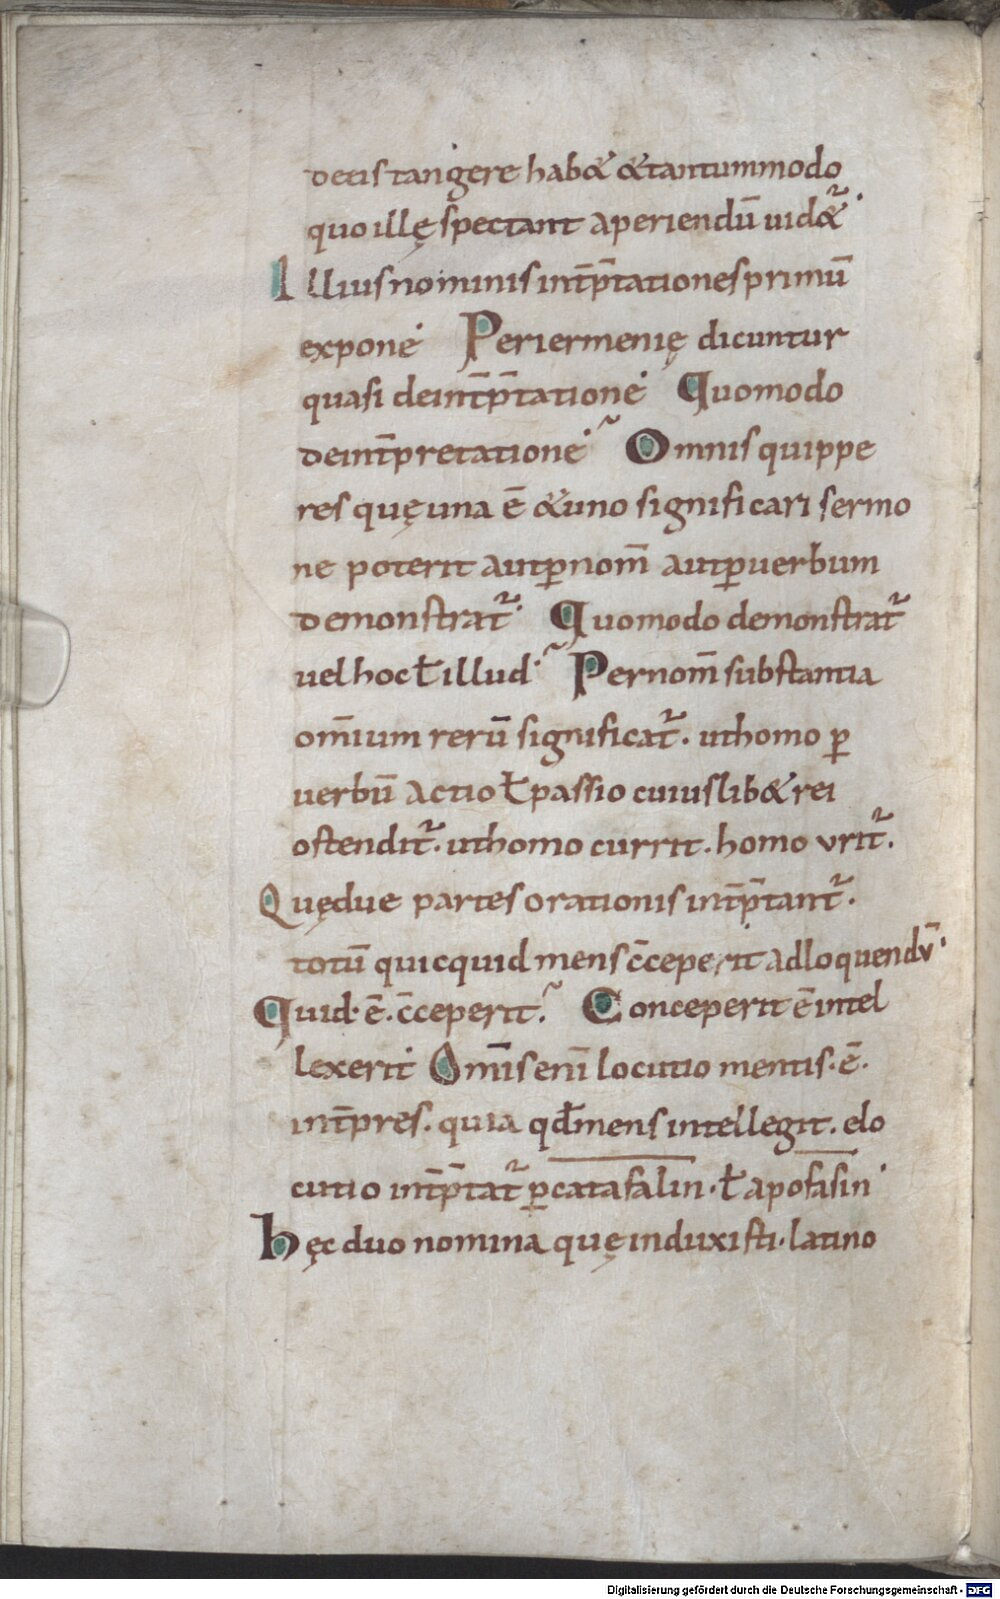 de eis tangere hab& &tantummodo
quo illę spectant aperiendū uid&ˀ.
Illius nominis int̄p̄tationes primū
expone. Periermenię dicuntur
quasi de int̄p̄tatione. Quomodo
de int̄pretatione? Omnis quippe
res quę una ē &uno significari sermo
ne poterit aut ꝑ nom̄ aut ꝑ uerbum
demonstrat̄ˀ. Quomodo demonstrat̄ˀ
uel hoc ł illud? Per nom̄ substantia
om̄ium rerū significat̄ˀ. ut homo ꝑ
uerbū actio ł passio cuiuslib& rei
ostendit̄ˀ. ut homo currit. homo urit̄ˀ.
Quę due partes orationis int̄p̄tant̄ˀ.
totū quicquid mens c̄ceperit ad loquendū.
Quid. ē. c̄ceperit? Conceperit ē intel
lexerit. Om̄is eni̅ locutio mentis. ē.
int̄pres. quia qd̄ mens intellegit. elo
cutio int̄p̄tat̄ˀ ꝑ catafasin. ł apofasin.
hęc duo nomina quę induxisti. latino
Digitalisierung gefördert durch die Deutsche Forschungsgemeinschaft - DFG